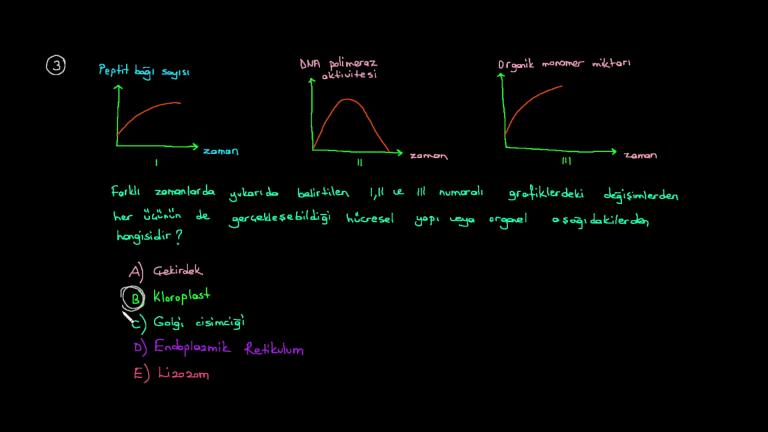 3
Peptit bağı sayısı
zaman
I
DNA polimeraz
aktivitesi
zaman
II
Organik monomer miktarı
zaman
III
Farklı zamanlarda yukarıda belirtilen I, II ve III numaralı grafiklerdeki değişimlerden
her üçünün de gerçekleşebildiği hücresel yapı veya organel aşağıdakilerden
hangisidir?
A) Çekirdek
B) Kloroplast
C) Golgi cisimciği
D) Endoplazmik Retikulum
E) Lizozom